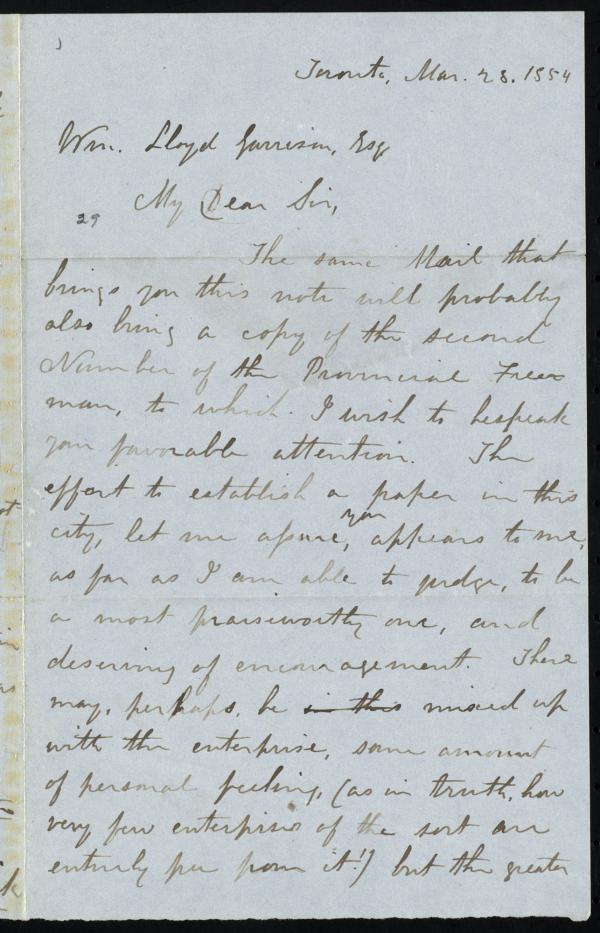 Toronto, Mar. 28. 1854
Wm. Lloyd Garrison, Esq
My Dear Sir,
29
The same Mail that
brings you this note will probably
also bring a copy of the second
Number of the Provincial Free
man, to which I wish to bespeak
your favorable attention. The
effort to establish a paper in this
city, let me assure, you appears to me,
as far as I am able to judge, to be
a most praiseworthy one, and
deserving of encouragement. There
may, perhaps, be in this mixed up
with the enterprise, some amount
of personal feeling, (as in truth, how
very few enterprises of the sort are
entirely free from it!) but the greater